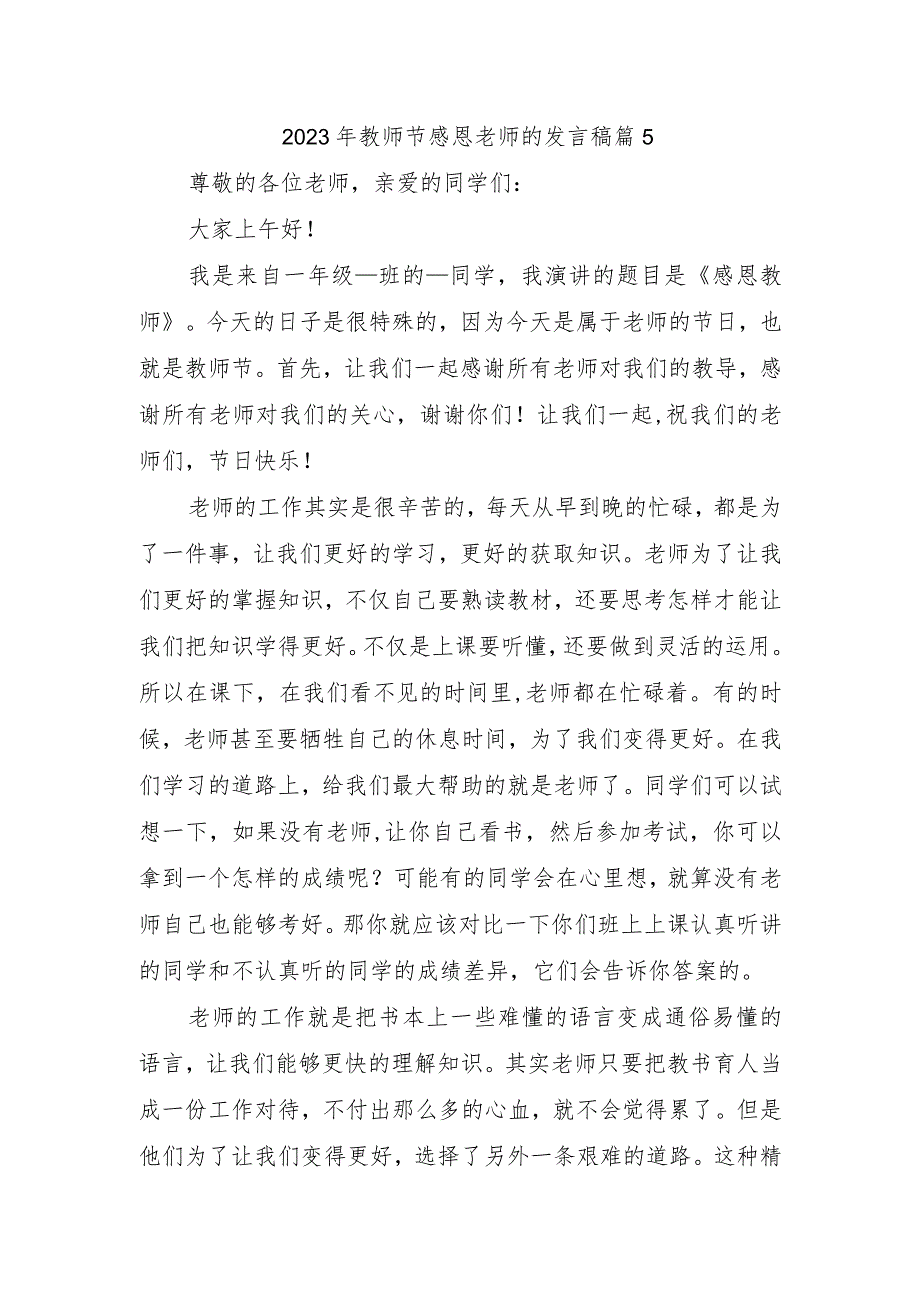 2023 年教师节感恩老师的发言稿篇 5
尊敬的各位老师，亲爱的同学们：
大家上午好！
我是来自一年级—班的—同学，我演讲的题目是《感恩教
师》。今天的日子是很特殊的，因为今天是属于老师的节日，也
就是教师节。首先，让我们一起感谢所有老师对我们的教导，感
谢所有老师对我们的关心，谢谢你们！让我们一起,祝我们的老
师们，节日快乐！
老师的工作其实是很辛苦的，每天从早到晚的忙碌，都是为
了一件事，让我们更好的学习，更好的获取知识。老师为了让我
们更好的掌握知识，不仅自己要熟读教材，还要思考怎样才能让
我们把知识学得更好。不仅是上课要听懂，还要做到灵活的运用。
所以在课下，在我们看不见的时间里,老师都在忙碌着。有的时
候，老师甚至要牺牲自己的休息时间，为了我们变得更好。在我
们学习的道路上，给我们最大帮助的就是老师了。同学们可以试
想一下，如果没有老师,让你自己看书，然后参加考试，你可以
拿到一个怎样的成绩呢？可能有的同学会在心里想，就算没有老
师自己也能够考好。那你就应该对比一下你们班上上课认真听讲
的同学和不认真听的同学的成绩差异，它们会告诉你答案的。
老师的工作就是把书本上一些难懂的语言变成通俗易懂的
语言，让我们能够更快的理解知识。其实老师只要把教书育人当
成一份工作对待，不付出那么多的心血，就不会觉得累了。但是
他们为了让我们变得更好，选择了另外一条艰难的道路。这种精